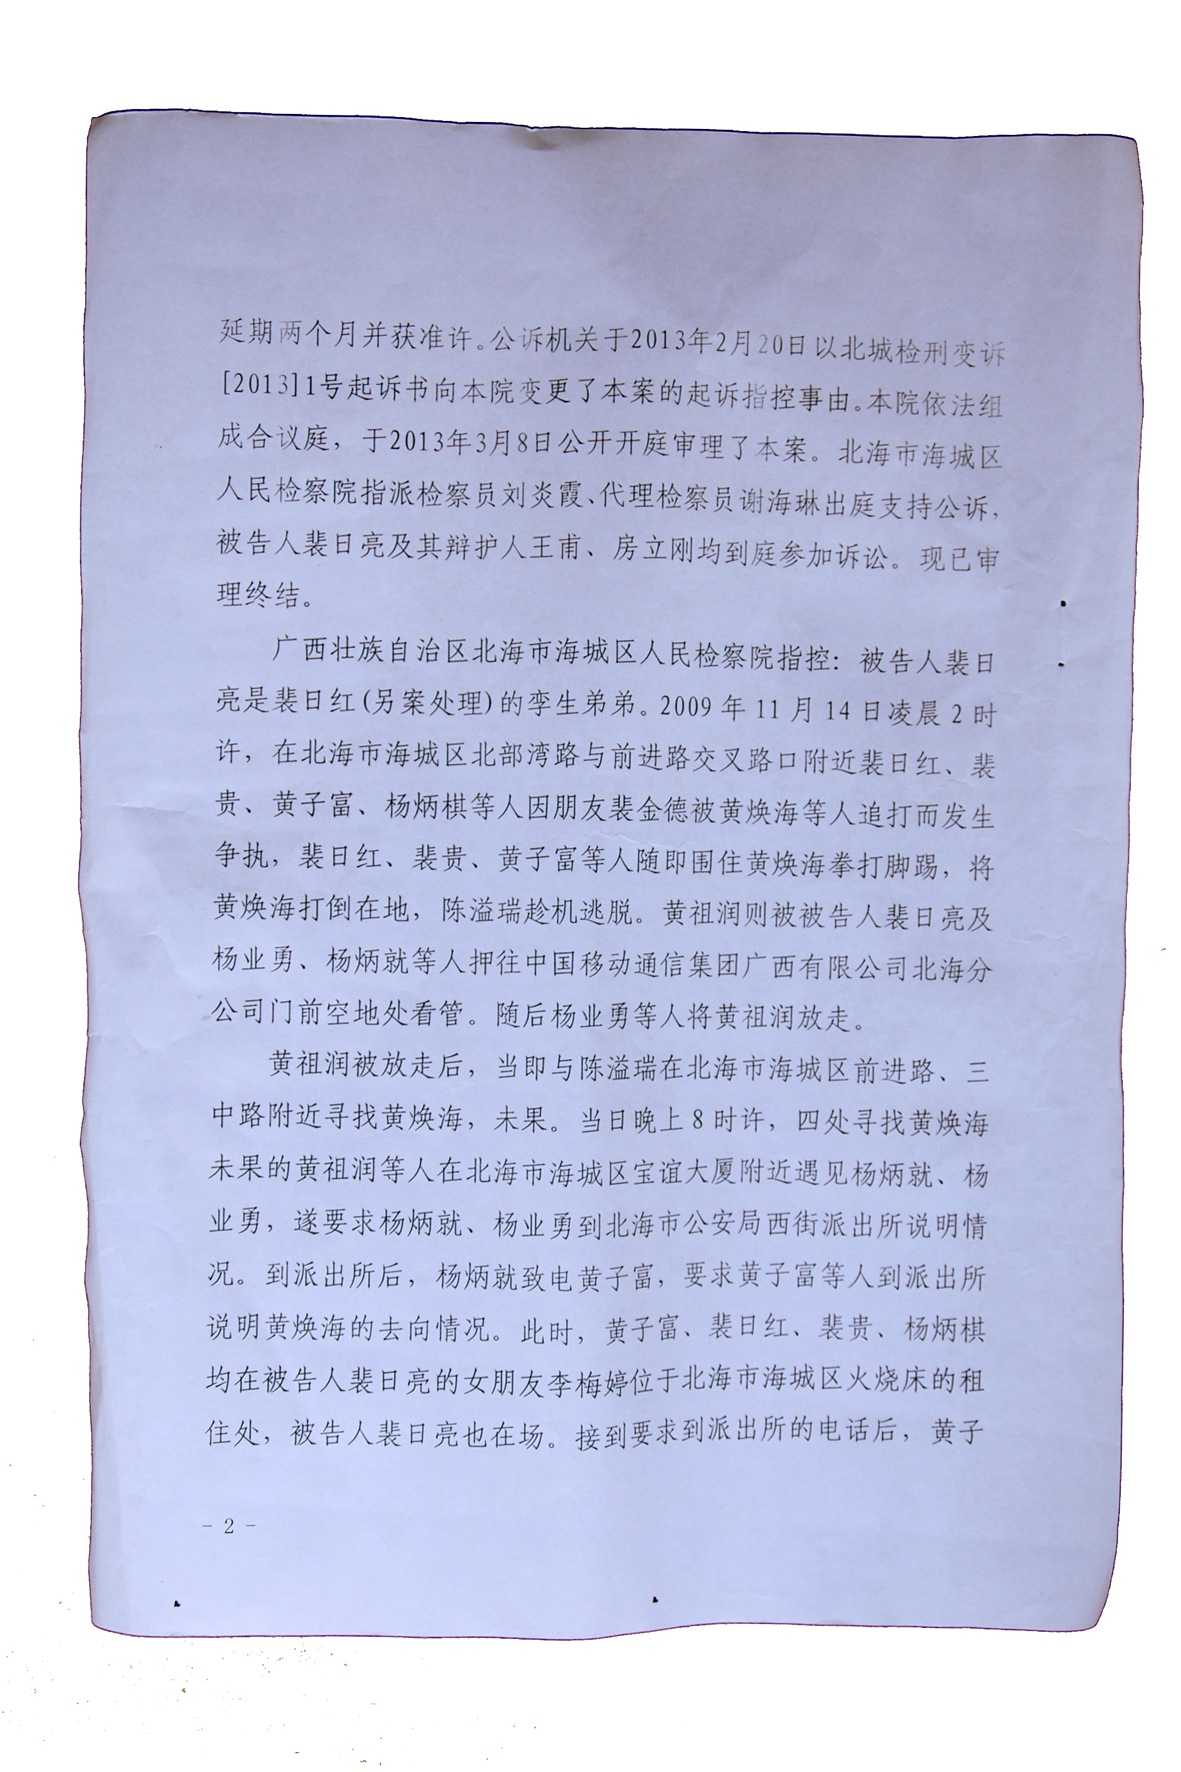 延期两个月并获准许。公诉机关于2013年2月20日以北城检刑变诉
[2013]1号起诉书向本院变更了本案的起诉指控事由。本院依法组
成合议庭，于2013年3月8日公开开庭审理了本案。北海市海城区
人民检察院指派检察员刘炎霞、代理检察员谢海琳出庭支持公诉，
被告人裴日亮及其辩护人王甫、房立刚均到庭参加诉讼。现已审
理终结。
广西壮族自治区北海市海城区人民检察院指控：被告人裴日
亮是裴日红(另案处理)的孪生弟弟。2009年11月14日凌晨2时
许，在北海市海城区北部湾路与前进路交叉路口附近裴日红、裴
贵、黄子富、杨炳棋等人因朋友裴金德被黄焕海等人追打而发生
争执，裴日红、裴贵、黄子富等人随即围住黄焕海拳打脚踢，将
黄焕海打倒在地，陈溢瑞趁机逃脱。黄祖润则被被告人裴日亮及
杨业勇、杨炳就等人押往中国移动通信集团广西有限公司北海分
公司门前空地处看管。随后杨业勇等人将黄祖润放走。
黄祖润被放走后，当即与陈溢瑞在北海市海城区前进路、三
中路附近寻找黄焕海，未果。当日晚上8时许，四处寻找黄焕海
未果的黄祖润等人在北海市海城区宝谊大厦附近遇见杨炳就、杨
业勇，遂要求杨炳就、杨业勇到北海市公安局西街派出所说明情
况。到派出所后，杨炳就致电黄子富，要求黄子富等人到派出所
说明黄焕海的去向情况。此时，黄子富、裴日红、裴贵、杨炳棋
均在被告人裴日亮的女朋友李梅婷位于北海市海城区火烧床的租
住处，被告人裴日亮也在场。接到要求到派出所的电话后，黄子
- 2 -